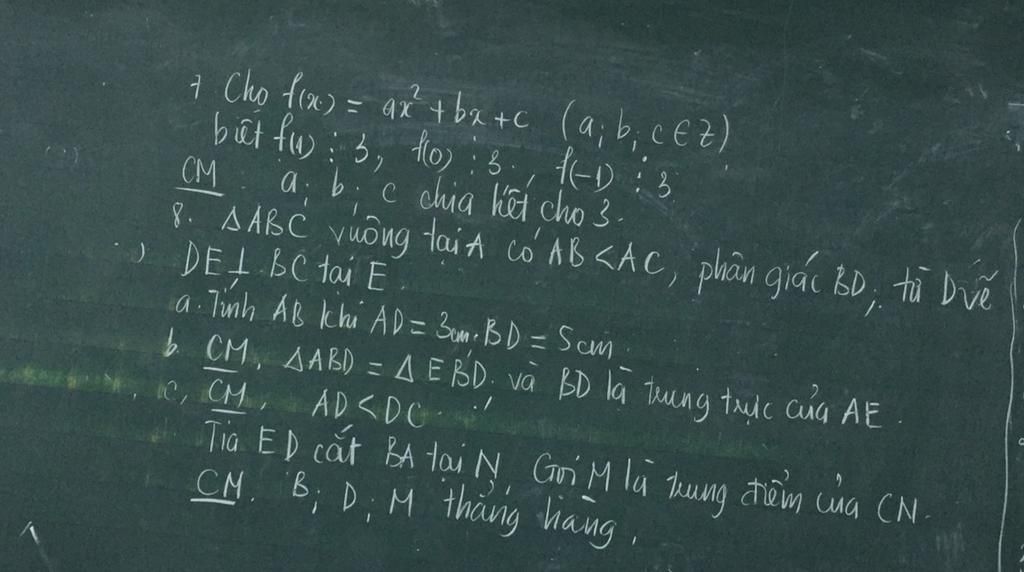 7 Cho f(x) = ax² + bx + c (a; b; c ∈ Z)
biết f(1) ⋮ 3, f(0) ⋮ 3, f(-1) ⋮ 3
CM a; b; c chia hết cho 3.
8. ΔABC vuông tại A có AB < AC, phân giác BD; từ D vẽ
DE ⊥ BC tại E.
a. Tính AB khi AD = 3cm. BD = 5cm
b. CM. ΔABD = ΔEBD. và BD là trung trực của AE.
c, CM, AD < DC.
Tia ED cắt BA tại N. Gọi M là trung điểm của CN.
CM. B; D; M thẳng hàng.